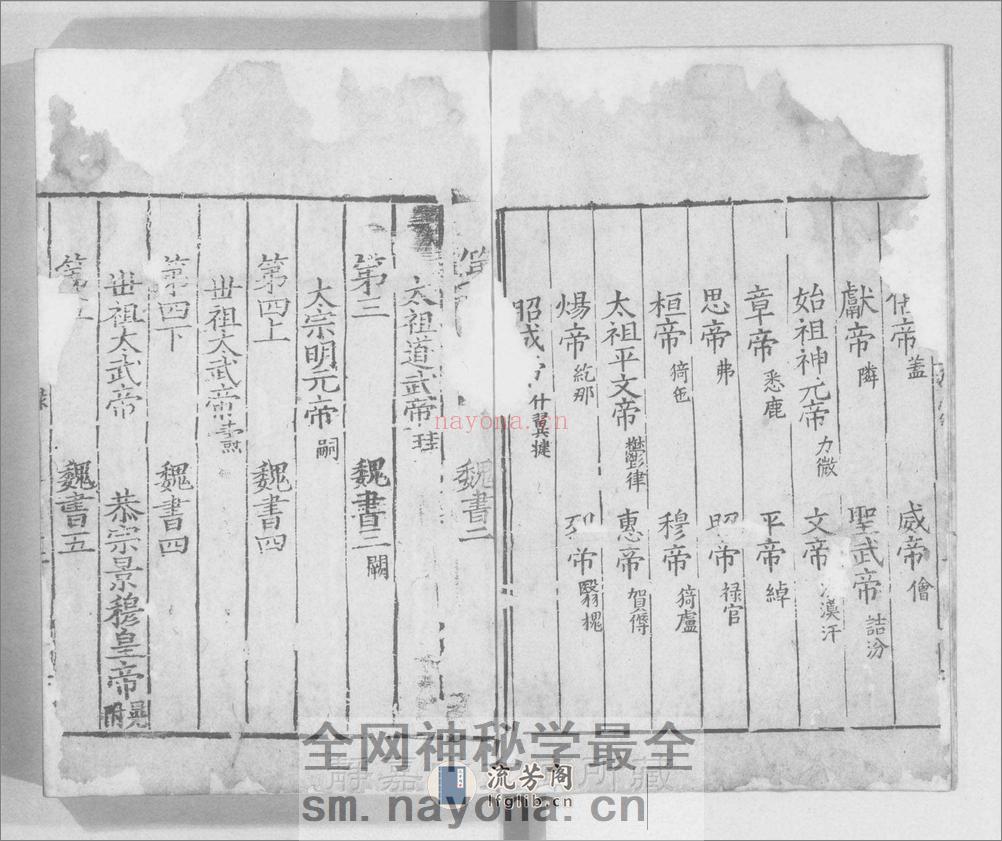 帝蓋 威帝儈
獻帝隣 聖武帝詰汾
始祖神元帝力微 文帝漠汗
章帝悉鹿 平帝綽
思帝弗 昭帝禄官
桓帝猗㐌 穆帝猗盧
太祖平文帝鬱律 惠帝賀傉
煬帝紇那 帝翳槐
昭成帝什翼揵
魏書二
太祖道武帝珪
第三 魏書三闕
太宗明元帝嗣
第四上 魏書四
世祖太武帝燾
第四下 魏書四
世祖太武帝 恭宗景穆皇帝晃附
第五 魏書五
nayona.cn
全网神秘学最全
流芳阁
lfglib.cn
sm.nayona.cn